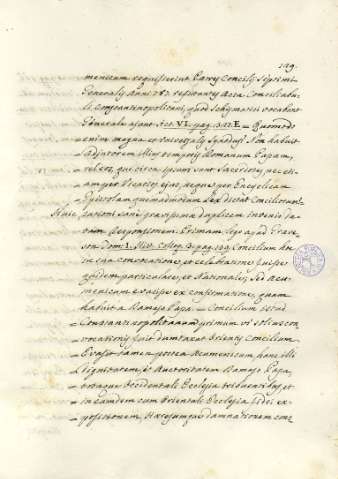 149.
menicum requisierint Patres Concilij Septimi
Generalij Anni 787. referentes Acta Conciliabu-
li Constantinopolitani, quod Schysmatici vocabant
Generale ajunt Act. VI. pag. 387. E = Quomodo
enim magna et universalis Synodus? Non habuit
adjutorem illius temporis Romanum Papam,
vel eos, qui circa ipsum sunt Sacerdotes, nec eti-
am per Vicarios ejus, neque per Encyclicam
Epistolam quemadmodum Lex dictat Conciliorum
Huic rationi sane gravissimae duplicem invenio da-
tam Responsionem. Primam lego apud Grave-
son Concilium hoc
in sua convocatione, et celebratione fuisse
quidem particulare, et Nationale, sed Acu-
menicum evasisse ex confirmatione, quam
habuit a Damaso Papa = Concilium istud
= Constantinopolitanum primum vi solius con-
= vocationis fuit dumtaxat Orientis Concilium
= Evasit tamen postea Acumenicum, pane illi
= Dignitatem, et Auctoritatem Damaso Papa,
= totaque Occidentali Ecclesia tribuentibus, et
= in eamdem cum Orientali Ecclesia Fidei ex-
= positionem, Haeresumque damnationem con-